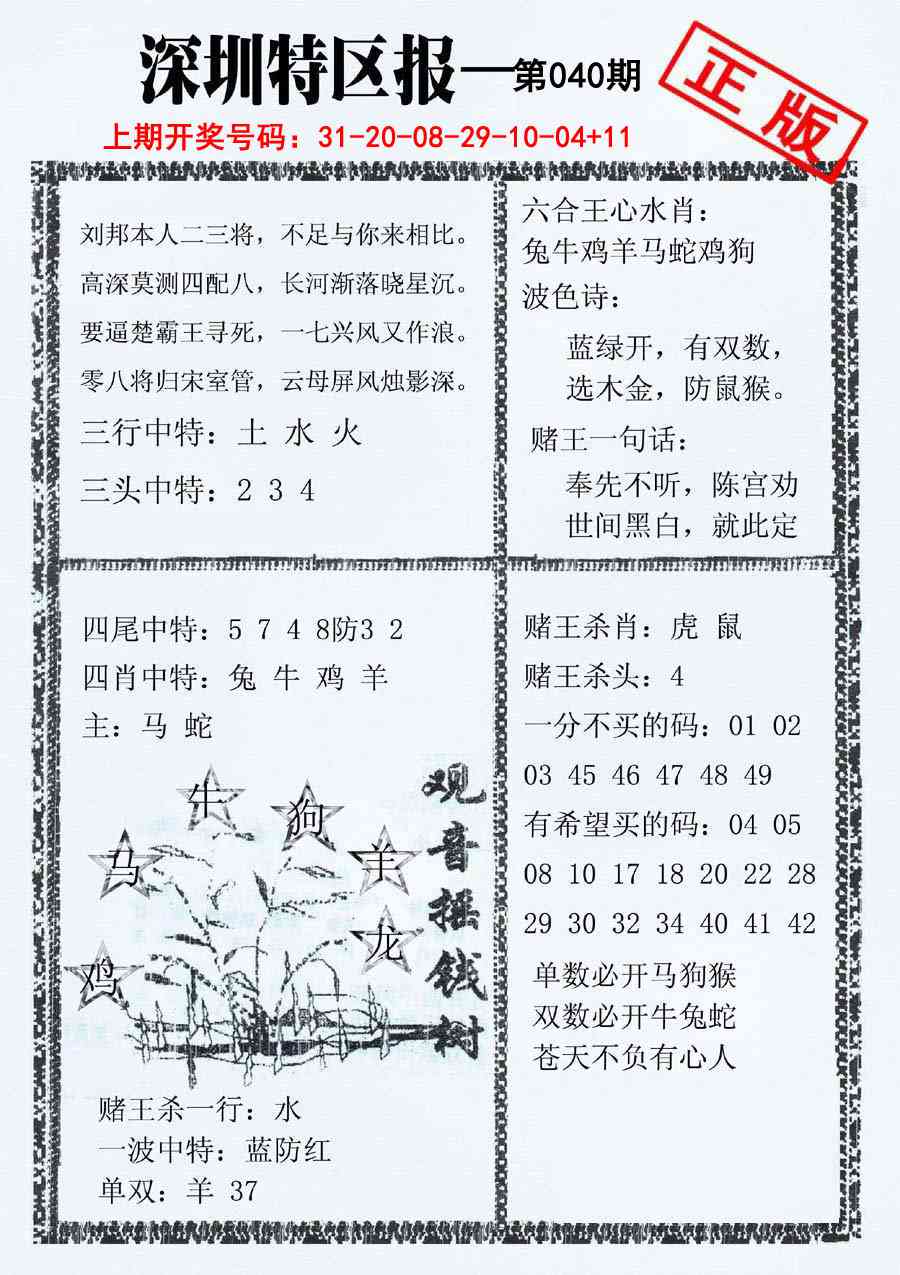 深圳特区报—第040期
正版
上期开奖号码：31-20-08-29-10-04+11
刘邦本人二三将，不足与你来相比。
高深莫测四配八，长河渐落晓星沉。
要逼楚霸王寻死，一七兴风又作浪。
零八将归宋室管，云母屏风烛影深。
三行中特：土 水 火
三头中特：2 3 4
六合王心水肖：
兔牛鸡羊马蛇鸡狗
波色诗：
蓝绿开，有双数，
选木金，防鼠猴。
赌王一句话：
奉先不听，陈宫劝
世间黑白，就此定
四尾中特：5 7 4 8防3 2
四肖中特：兔 牛 鸡 羊
主：马 蛇
牛
狗
马
羊
龙
鸡
观音摇钱树
赌王杀一行：水
一波中特：蓝防红
单双：羊 37
赌王杀肖：虎 鼠
赌王杀头：4
一分不买的码：01 02
03 45 46 47 48 49
有希望买的码：04 05
08 10 17 18 20 22 28
29 30 32 34 40 41 42
单数必开马狗猴
双数必开牛兔蛇
苍天不负有心人